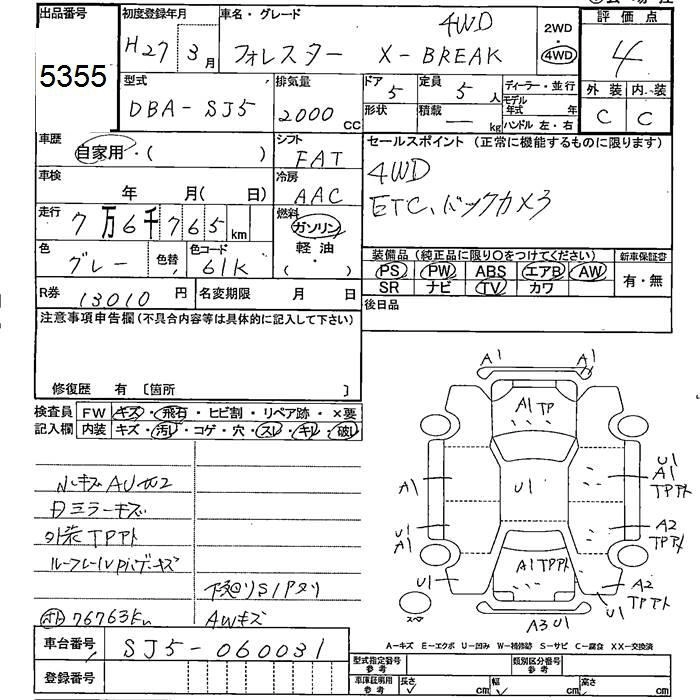 出品番号
5355
初度登録年月
H27 3月
車名・グレード
フォレスター X-BREAK
4WD
2WD
4WD
評価点
4
外装 内装
C C
型式
DBA-SJ5
排気量
2000 CC
ドア
5
定員
5人
形状
積載
— kg
ディーラー・並行
モデル年式 年
ハンドル 左・右
車歴
自家用・( )
シフト
FAT
車検
年 月( 日)
冷房
AAC
走行
7万6千765km
燃料
ガソリン
軽油
( ・ )
色
グレー
色替
色コード
61K
R券
13010円
名変期限 月 日
セールスポイント(正常に機能するものに限ります)
4WD
ETC、バックカメラ
装備品(純正品に限り○をつけてください)
PS PW ABS エアB AW
SR ナビ TV カワ
新車保証書
有・無
後日品
注意事項申告欄(不具合内容等は具体的に記入して下さい)
修復歴 有〔箇所 〕
検査員記入欄
FW キズ・飛石・ヒビ割・リペア跡・×要
内装 キズ・汚レ・コゲ・穴・スレ・キレ・破レ
ミラーキズ
外装TPアト
下廻りS1アタリ
76763km
AWキズ
車台番号
SJ5-060031
登録番号
A1 A1
A1 TP
U1
A1
U1
A1
U1
U1
A1
TPアト
A2
TPアト
A1 TPアト
A2
TPアト
U1
A3 U1
A-キズ E-エクボ U-凹み W-補修跡 S-サビ C-腐食 XX-交換済
型式指定番号 参考
類別区分番号 参考
車庫証明用 参考
長さ cm 幅 cm 高さ cm